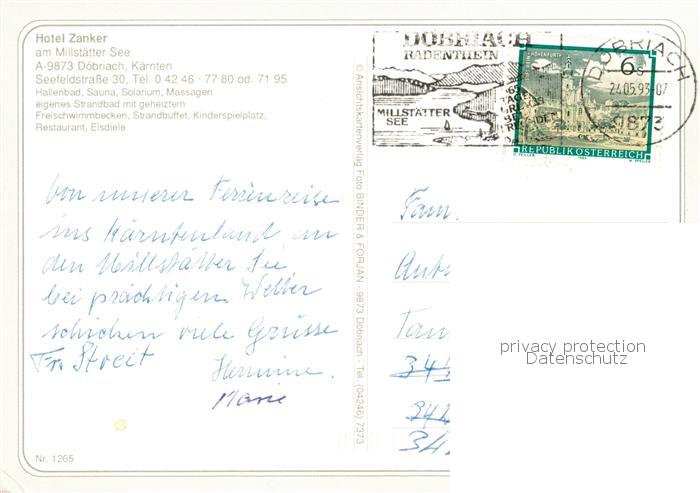 Hotel Zanker
am Millstätter See
A-9873 Döbriach, Kärnten
Seefeldstraße 30, Tel. 0 42 46 · 77 80 od. 71 95
Hallenbad, Sauna, Solarium, Massagen
eigenes Strandbad mit geheiztem
Freischwimmbecken, Strandbuffet, Kinderspielplatz,
Restaurant, Eisdiele
Von unserer Ferienreise
ins Kärntenland an
den Millstätter See,
bei prächtigem Wetter
schicken viele Grüsse
Fr. Streit Hermine.
Marie
Nr. 1265
© Ansichtskartenverlag Foto BINDER & FORJAN - 9873 Döbriach - Tel. (04246) 7373
DÖBRIACH
RADENTHEIN
MILLSTÄTTER
SEE
6s
REPUBLIK ÖSTERREICH
DÖBRIACH
24.05.93-07
9873
Fam.
privacy protection
Datenschutz